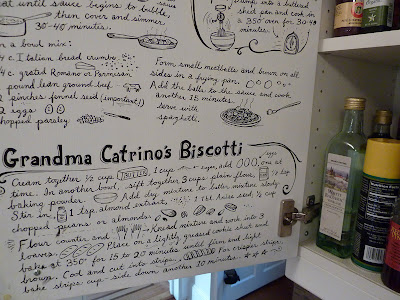 until sauce begins to bubble
then cover and simmer
30-40 minutes.
a 350° oven for 30-40
minutes.
n a bowl mix:
c. Italian bread crumbs
c. grated Romano or Parmesan
pound lean ground beef
2 pinches fennel seed (important!)
2 eggs
chopped parsley.
Form small meatballs and brown on all
sides in a frying pan.
Add the balls to the sauce and cook
another 15 minutes.
serve with
spaghetti.
Grandma Catrino's Biscotti
Cream together ½ cup BUTTER 1 cup
add eggs one at
time. In another bowl, sift together 3 cups plain flour, tsp
baking powder. Add dry mixture to butter mixture
Stir in 1 tsp almond extract, 1 tbl. Anise seed ½ cup
chopped pecans or almonds.
Flour counter and Knead mixture and rook into 3
loaves. Place on a lightly greased cookie sheet and
bake at 350° for 15 to 20 minutes until firm and light
brown. Cool and cut into strips. For crisper strips,
bake strips cup-side down another 10 minutes.